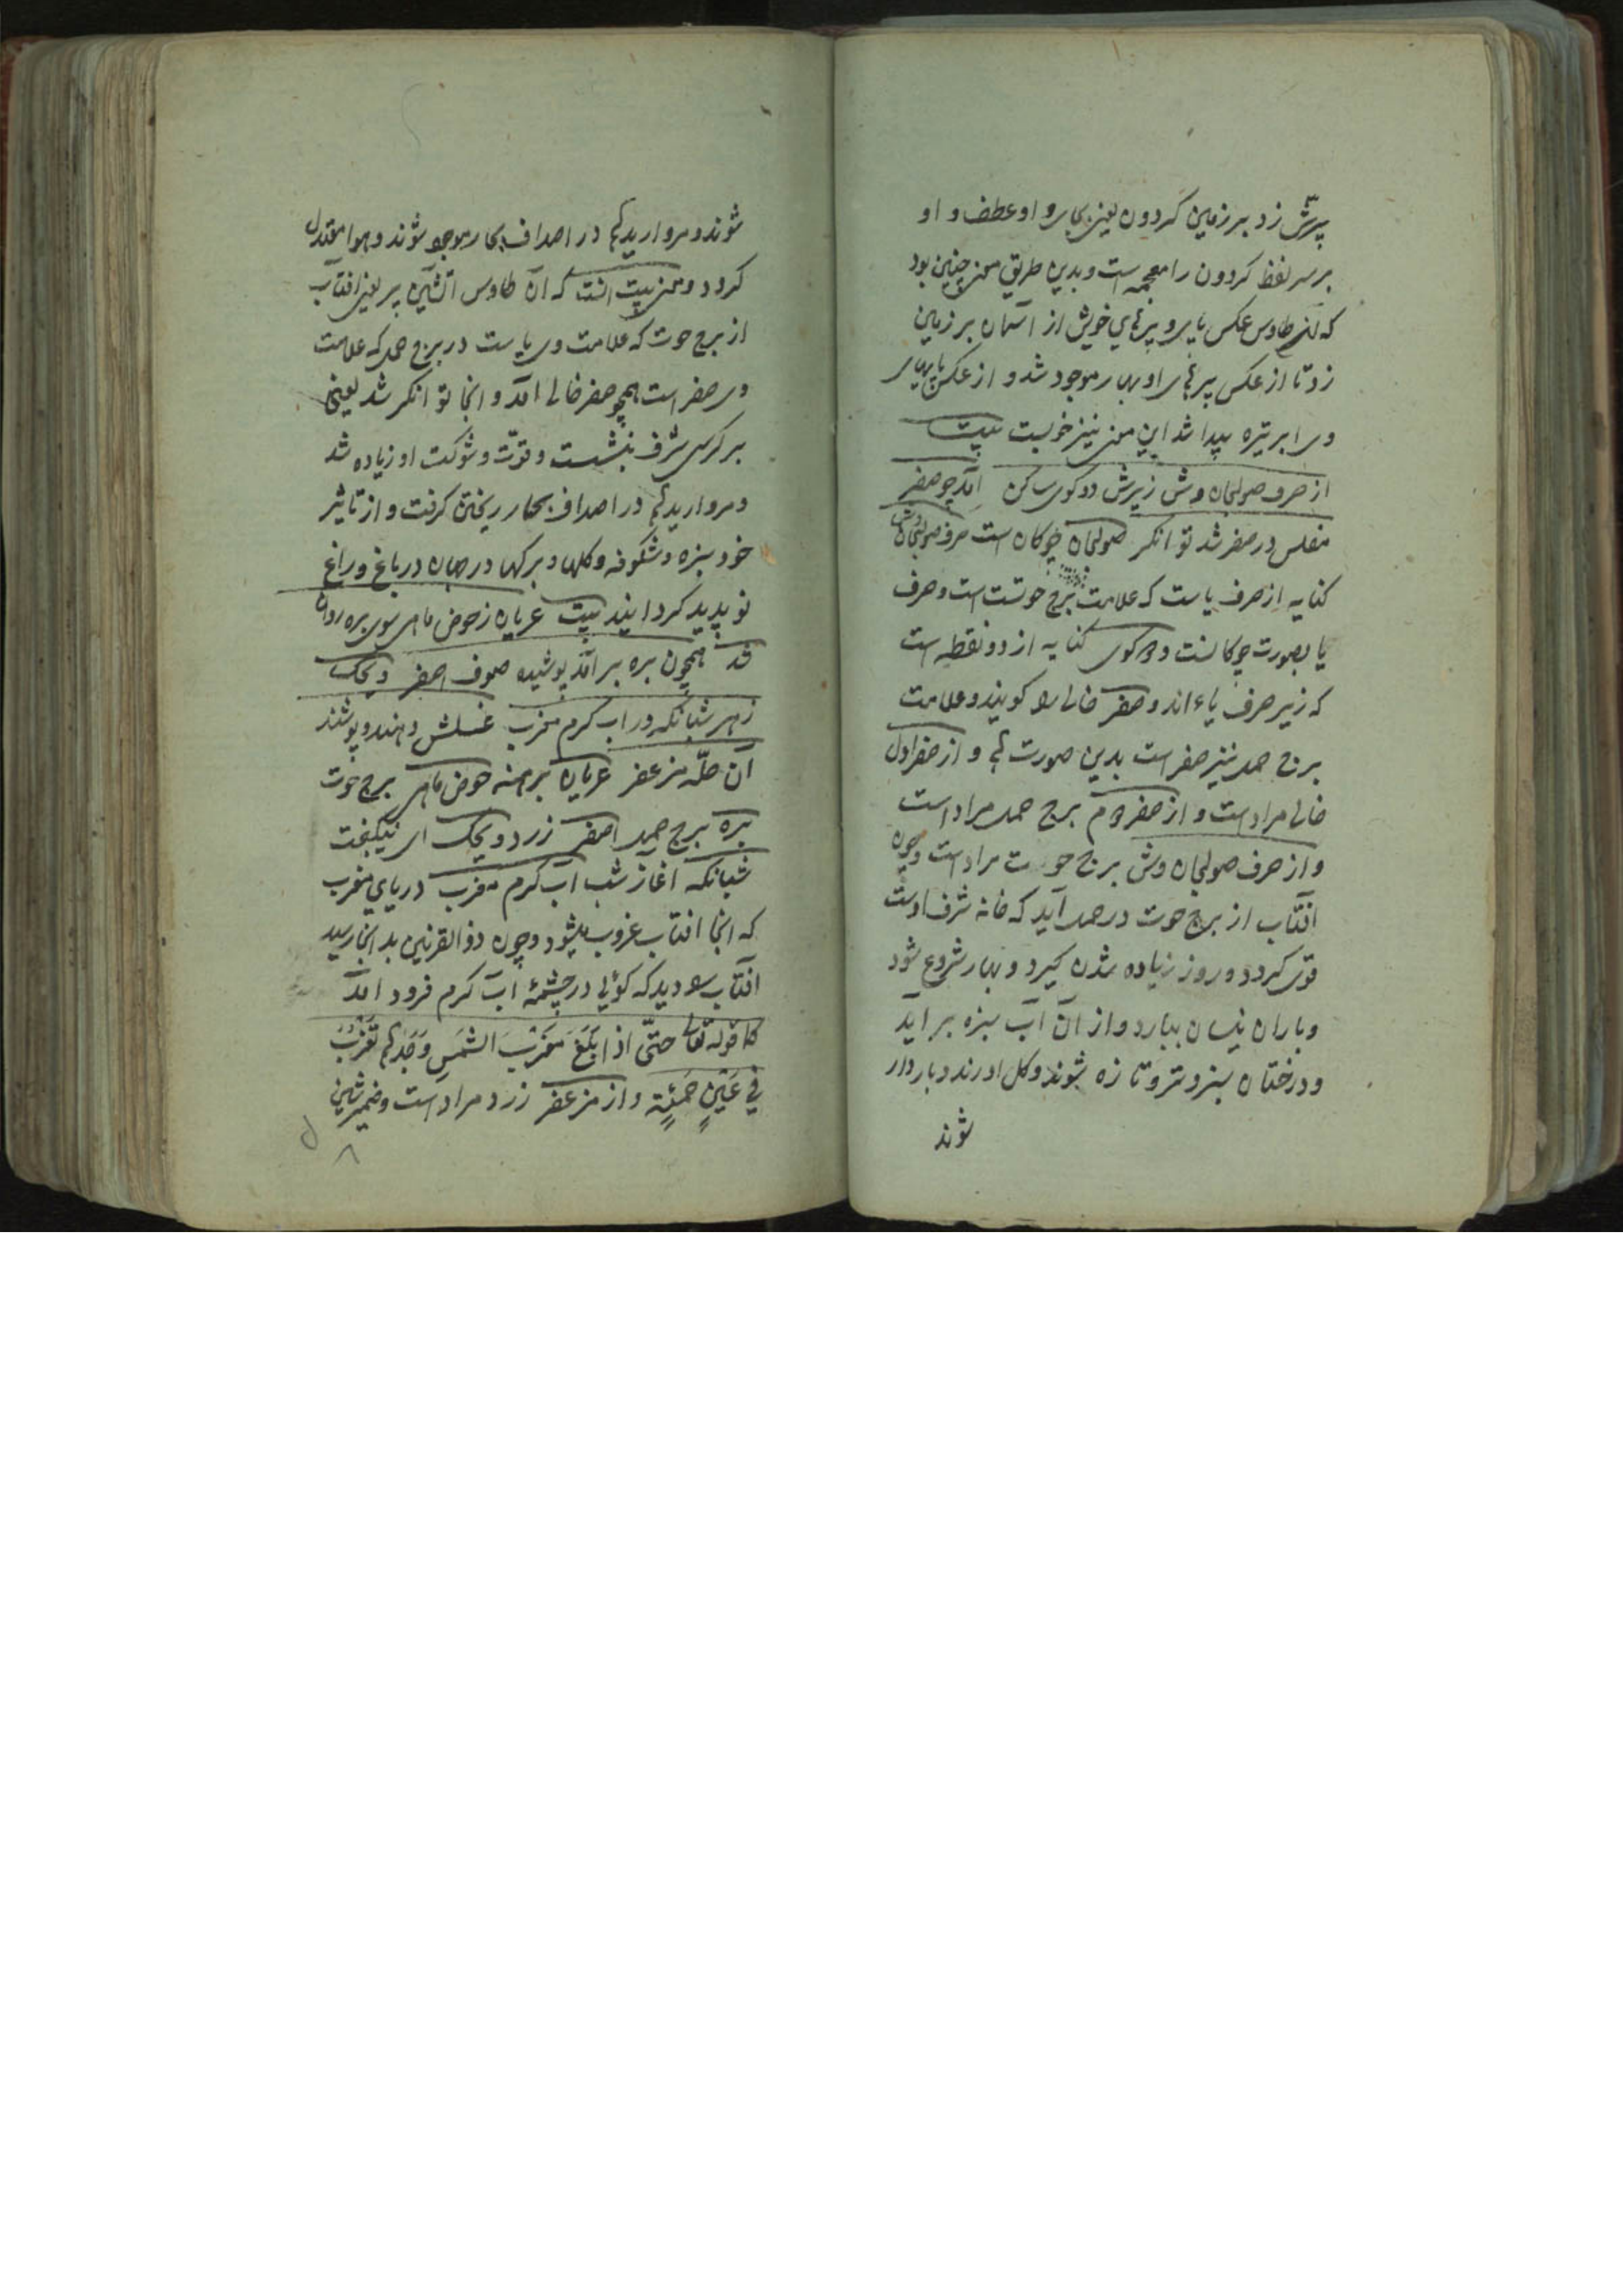 پرّش زد بر زمین کردون یعنی بجای و او عطف و او
بر سر لفظ کردون را معجمه است و بدین طریق معنی چنین بود
که طاوس عکس پای و پرهای خویش از آسمان بر زمین
زد تا از عکس پرهای او بهار موجود شد و از عکس پایهای
وی ابر تیره پیدا شد این معنی نیز خوبست بیت
از حرف صولجان وش زیرش دو کوی ساکن آمد چو صفر
مفلس در صفر شد توانکر صولجان چوکان است حرف صولجان وش
کنایه از حرف یاست که علامت برج حوتست است و حرف
یا بصورت چوکانست و دو کوی کنایه از دو نقطه است
که زیر حرف یاء اند و صفر خالی را کویند و علامت
برج حمل نیز صفر است بدین صورت و از صفر اول
خالی مراد است و از صفر دوم برج حمل مراد است
و از حرف صولجان وش برج حوت مراد است و چون
افتاب از برج حوت در حمل آید که خانه شرف اوست
قوی کردد و روز زیاده شدن کیرد و بهار شروع شود
و باران نیسان ببارد و از آن آب سبزه بر آید
و درختان سبز و تر و تازه شوند و کل اورند و باردار
شوند
شوند و مرواریدها در اصداف بحار موجود شوند و هوا معتدل
کردد و معنی بیت انست که آن طاوس آتشین پر یعنی افتاب
از برج حوت که علامت وی یاست در برج حمل که علامت
وی صفر است همچو صفر خالی آمد و انجا توانکر شد یعنی
بر کرسی شرف بنشست و قوّت و شوکت او زیاده شد
و مرواریدها در اصداف بحار ریختن کرفت و از تاثیر
خود سبزه و شکوفه و کلها و برکها در جهان در باغ و راغ
نو پدید کردانید بیت عریان ز حوض ماهی سوی بره روان
شد همچون بره بر آمد پوشیده صوف اصفر ویحک
زهر شبانکه در اب کرم مغرب غسلش دهند و پوشند
آن حلّه مزعفر عریان برهنه حوض ماهی برج حوت
بره برج حمل اصفر زرد ویحک ای نیکبخت
شبانکه آغاز شب آب کرم مغرب دریای مغرب
که انجا افتاب غروب میشود و چون ذو القرنین بدانجا رسید
آفتاب را دید که کوئی در چشمهٔ اب کرم فرود آمد
کما قوله تعالی حتّی اذا بَلَغَ مَغرِبَ الشَمسِ وَجَدَها تَغرُبُ
فی عَینٍ حَمِئَةٍ و از مزعفر زرد مراد است و ضمیر شین